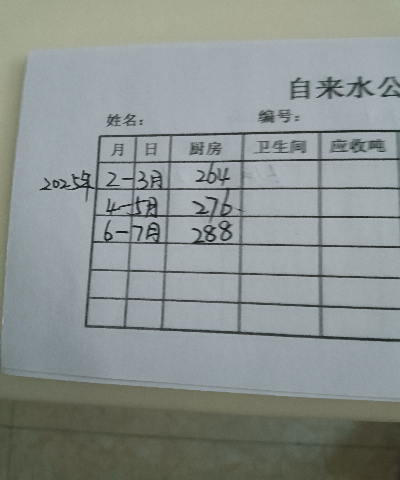 自来水公
姓名： 编号：
月 日 厨房 卫生间 应收吨
2025年 2-3月 264
4-5月 276
6-7月 288